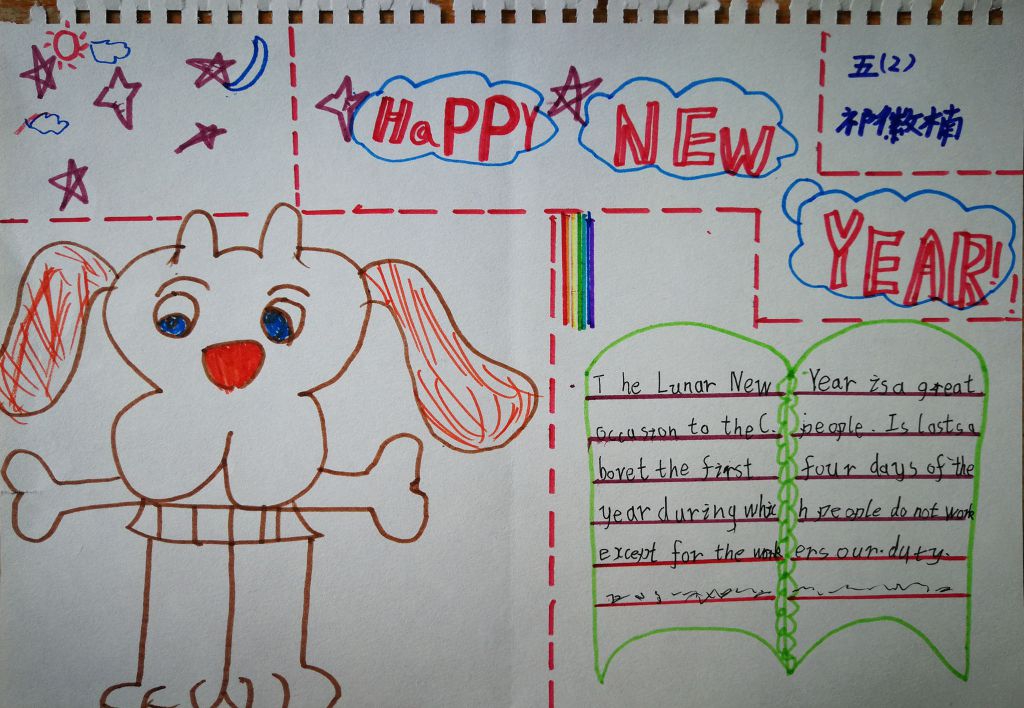 HaPPY NEW
YEAR!
五(2)
The Lunar New Year is a great
occasion to the C. people. Is lasts a
bovet the first four days of the
year during which people do not work
except for the workers our duty.